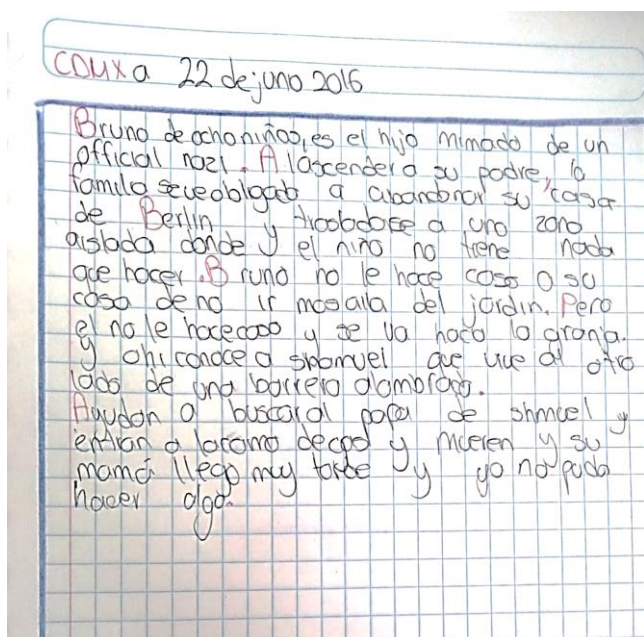 CDMX a 22 dejuno 2016
Bruno de ochoniños, es el hijo mimado de un
official nazi. A lascender a su padre, la
famila seveobligado a abandonar su casa
de Berlin y trasladarse a una zona
aislada donde y el niño no tiene nada
que hacer. Bruno no le hace caso a su
casa deno ir masalla del jardin. Pero
el no le hacecaso y se va hacia la granja.
y ahi conoce a shamuel que vive al otro
lado de una barrera alambrada.
Ayudan a buscaral papa de shmuel y
entran a y mueren y su
mamá llego muy tarde y yo no pudo
hacer algo.